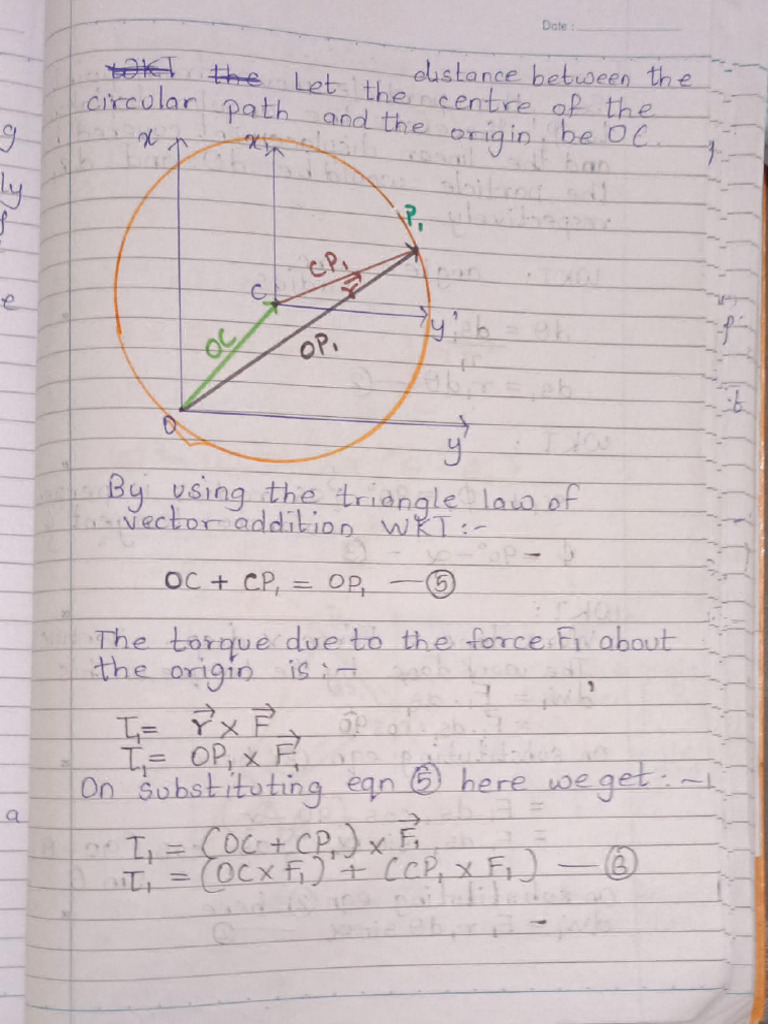 Date :
WKT the Let the distance between the
circular path and the centre of the
and the origin be OC.
x
x'
P₁
CP₁
r⃗
C
y'
OC
OP₁
O
y
By using the triangle law of
vector addition WKT :-
OC + CP₁ = OP₁ — ⑤
The torque due to the force F₁ about
the origin is :-
τ₁ = r⃗ × F⃗
τ₁ = OP₁ × F⃗₁
On substituting eqn ⑤ here we get : -
τ₁ = (OC + CP₁) × F⃗₁
τ₁ = (OC × F₁) + (CP₁ × F₁) — ⑥
g
ly
e
a